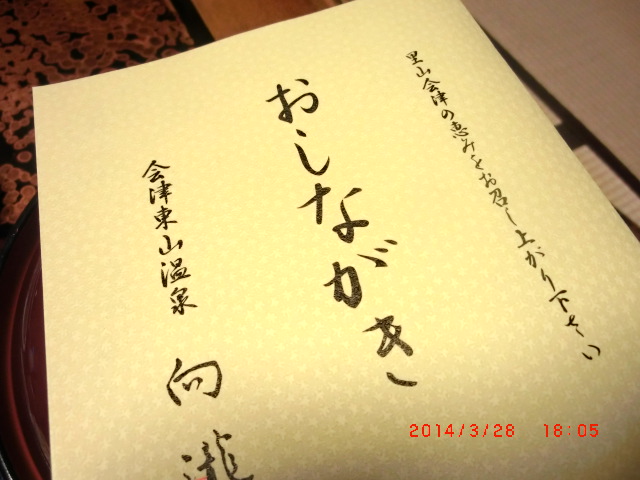 里山会津の恵みをお召し上がり下さい
おしながき
会津東山温泉
向瀧
2014/3/28 18:05